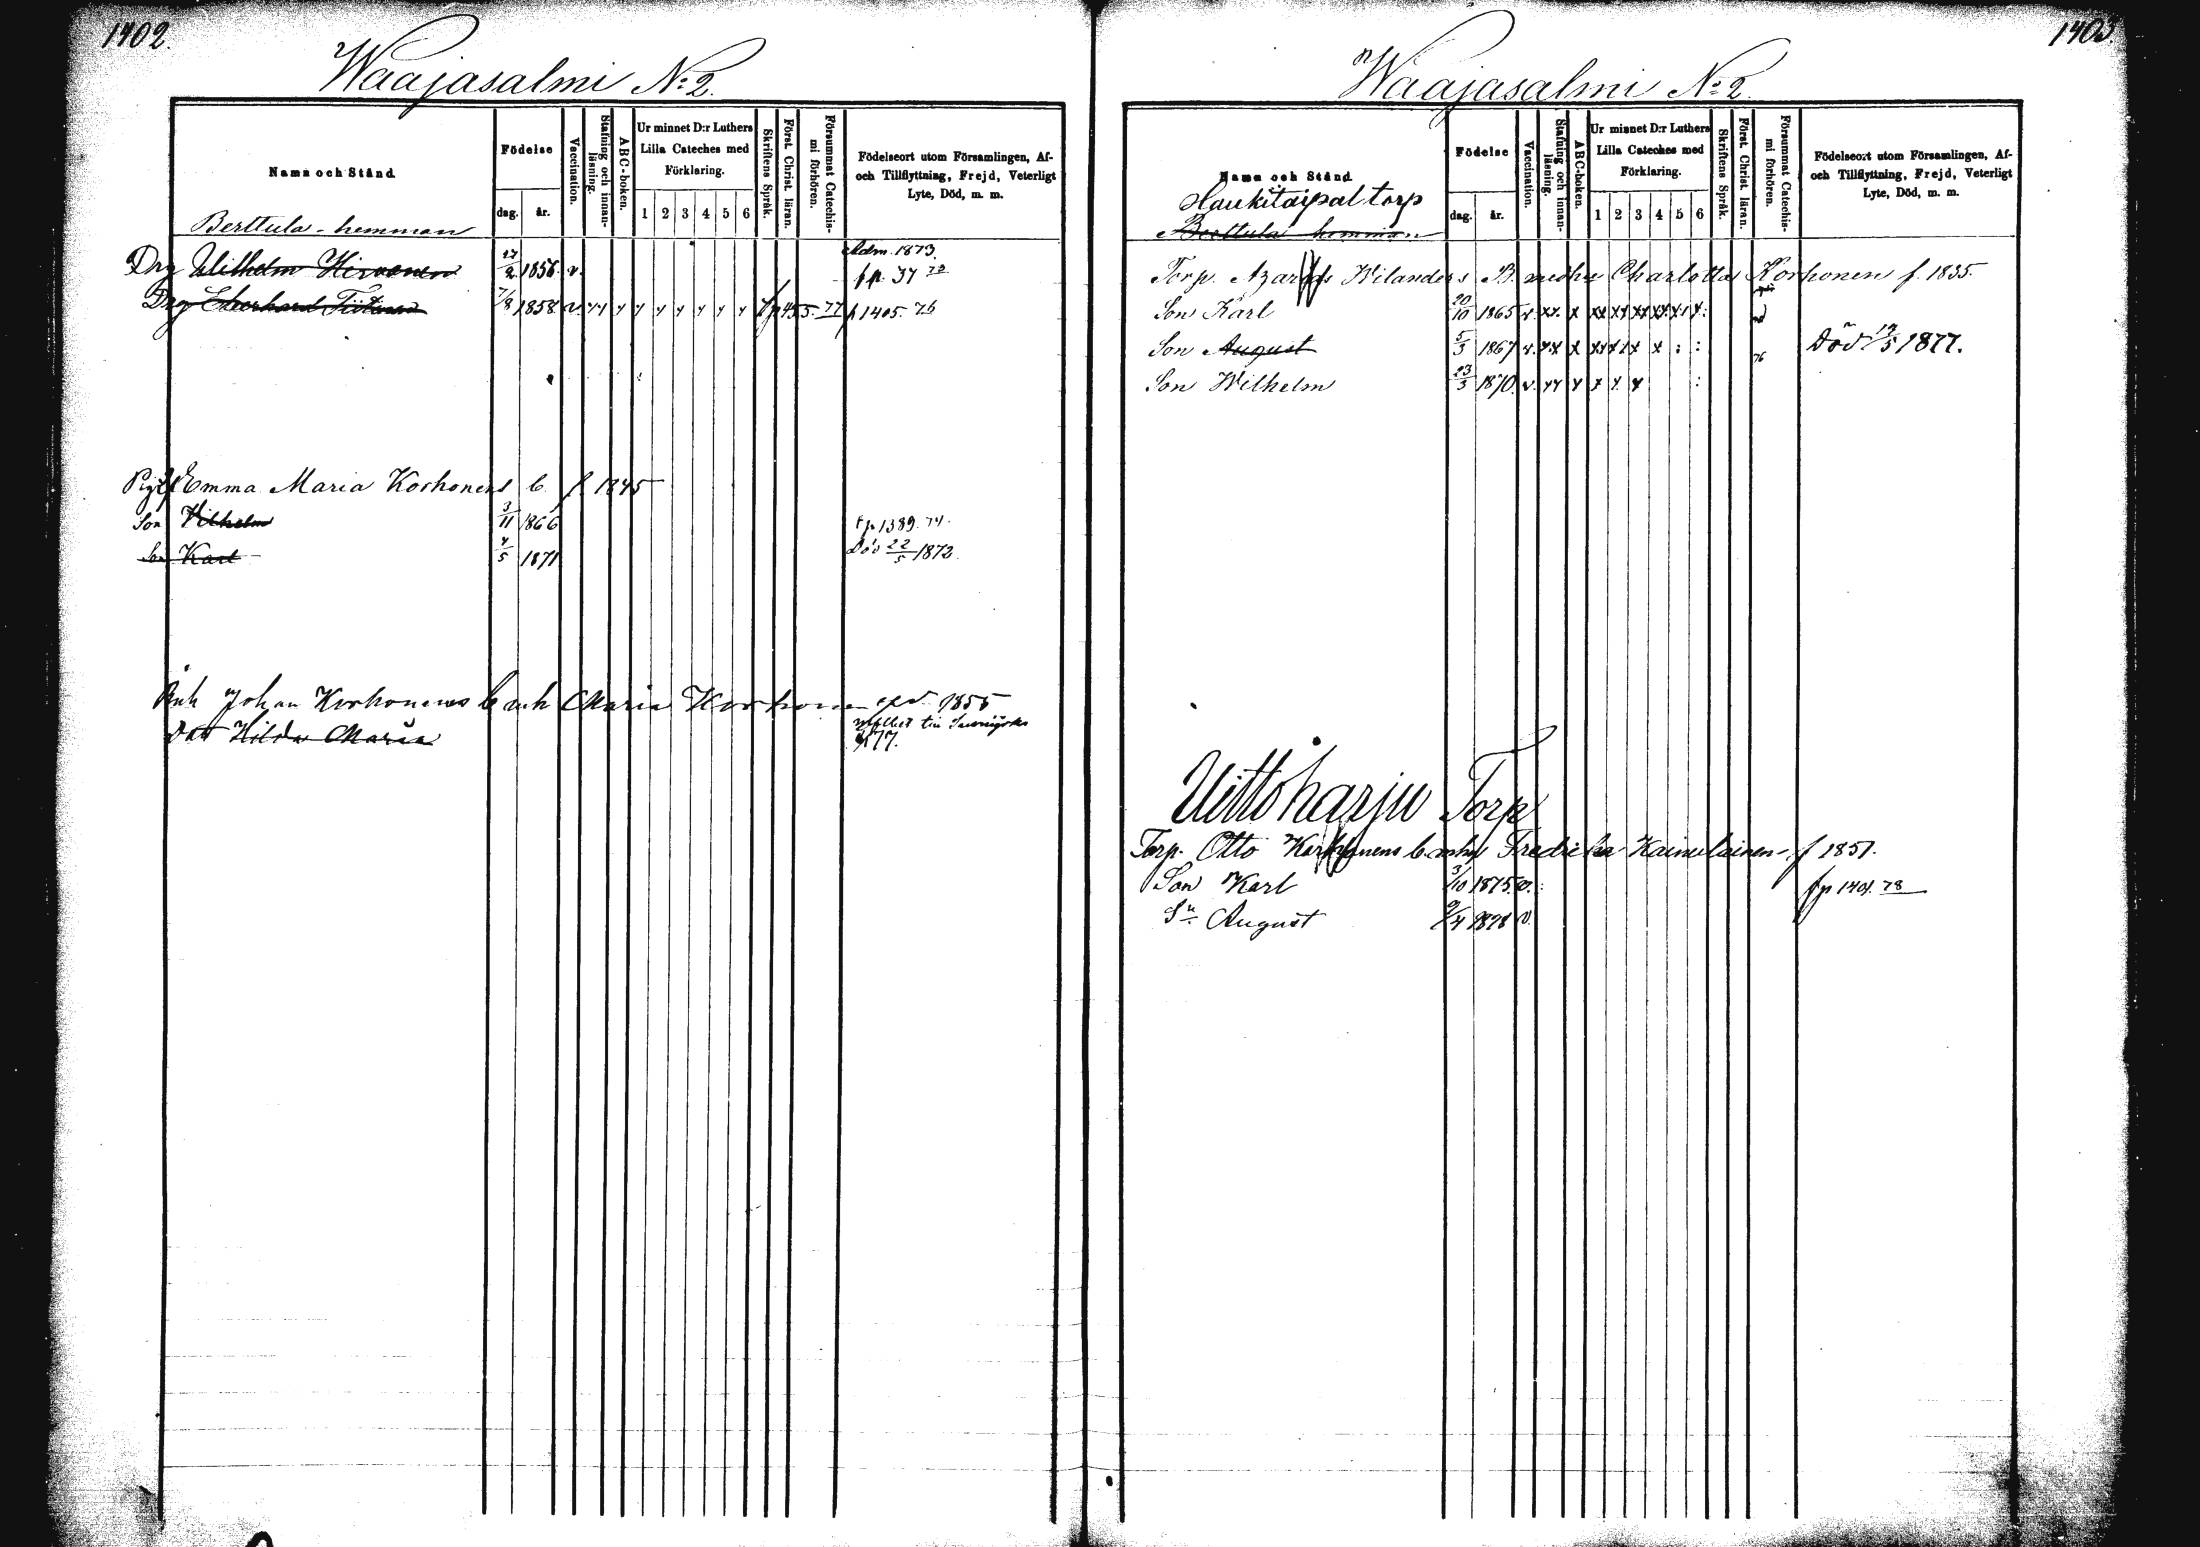 1402.
Waajasalmi No 2.
Namn och Stånd
Födelse
dag.
år.
Vaccination.
Stafning och innanläsning.
ABC-boken.
Ur minnet D:r Luthers
Lilla Cateches med
Förklaring.
1 2 3 4 5 6
Skriftens Språk.
Först. Christ. läran.
Försummat Catechismi förhören.
Födelseort utom Församlingen, Af-
och Tillflyttning, Frejd, Veterligt
Lyte, Död, m. m.
Berttula-hemman
Drg Wilhelm Hirvonen 27/2 1856 v. Adm. 1873.
Drg Eberhard 7/8 1858 v. fp 1405. 76
Emma Maria Korhonens b f. 1845
Son Vilhelm 3/11 1866 fp. 1389. 74.
Son Karl 4/5 1871 Död 22/5 1872.
Johan Korhonens b Maria Korhonen 1855
Hilda Maria
77.
1403.
Waajasalmi No 2.
Namn och Stånd
Födelse
dag.
år.
Vaccination.
Stafning och innanläsning.
ABC-boken.
Ur minnet D:r Luthers
Lilla Cateches med
Förklaring.
1 2 3 4 5 6
Skriftens Språk.
Först. Christ. läran.
Försummat Catechismi förhören.
Födelseort utom Församlingen, Af-
och Tillflyttning, Frejd, Veterligt
Lyte, Död, m. m.
Haukitaipal torp
Berttula hemman
Torp. Wilanders B. Charlotta Korhonen f. 1835.
Son Karl 20/10 1865 v.
Son August 5/3 1867 v. Död 19/5 1877.
76
Son Wilhelm 23/3 1870. v.
Uittoharju Torp
Torp. Otto Korhonens b. Fredrika Kainulainen f 1851.
Son Karl 3/10 1875 v. fp 1401. 78
Sn August 9/4 1878 v.